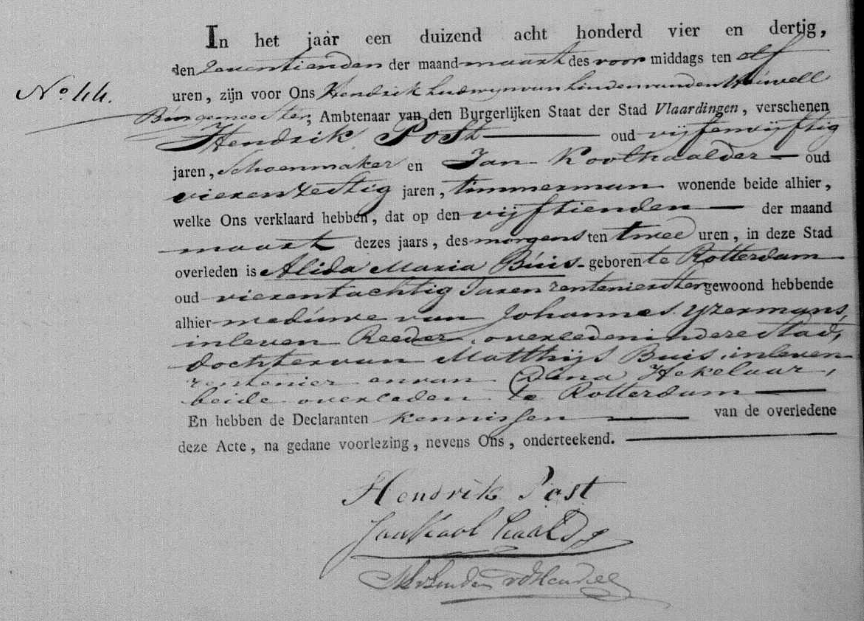 In het jaar een duizend acht honderd vier en dertig,
den Zeventienden der maand maart des voor middags ten elf
No. 44.
uren, zijn voor Ons Hendrik Ludwyn van Linden van den Heuvell
Burgemeester; Ambtenaar van den Burgerlijken Staat der Stad Vlaardingen, verschenen
Hendrik Post oud vijfenvijftig
jaren, Schoenmaker en Jan Koolhaalder oud
vierenzestig jaren, timmerman wonende beide alhier,
welke Ons verklaard hebben, dat op den vijftienden der maand
maart dezes jaars, des morgens ten twee uren, in deze Stad
overleden is Alida Maria Buis geboren te Rotterdam
oud vierentachtig Jaren rentenierster gewoond hebbende
alhier weduwe van Johannes IJzermans,
in leven Reeder, overleden in deze Stad,
dochter van Matthijs Buis, in leven
rentenier en van Dana Hekelaar,
beide overleden te Rotterdam
En hebben de Declaranten kennissen van de overledene
deze Acte, na gedane voorlezing, nevens Ons, onderteekend.
Hendrik Post